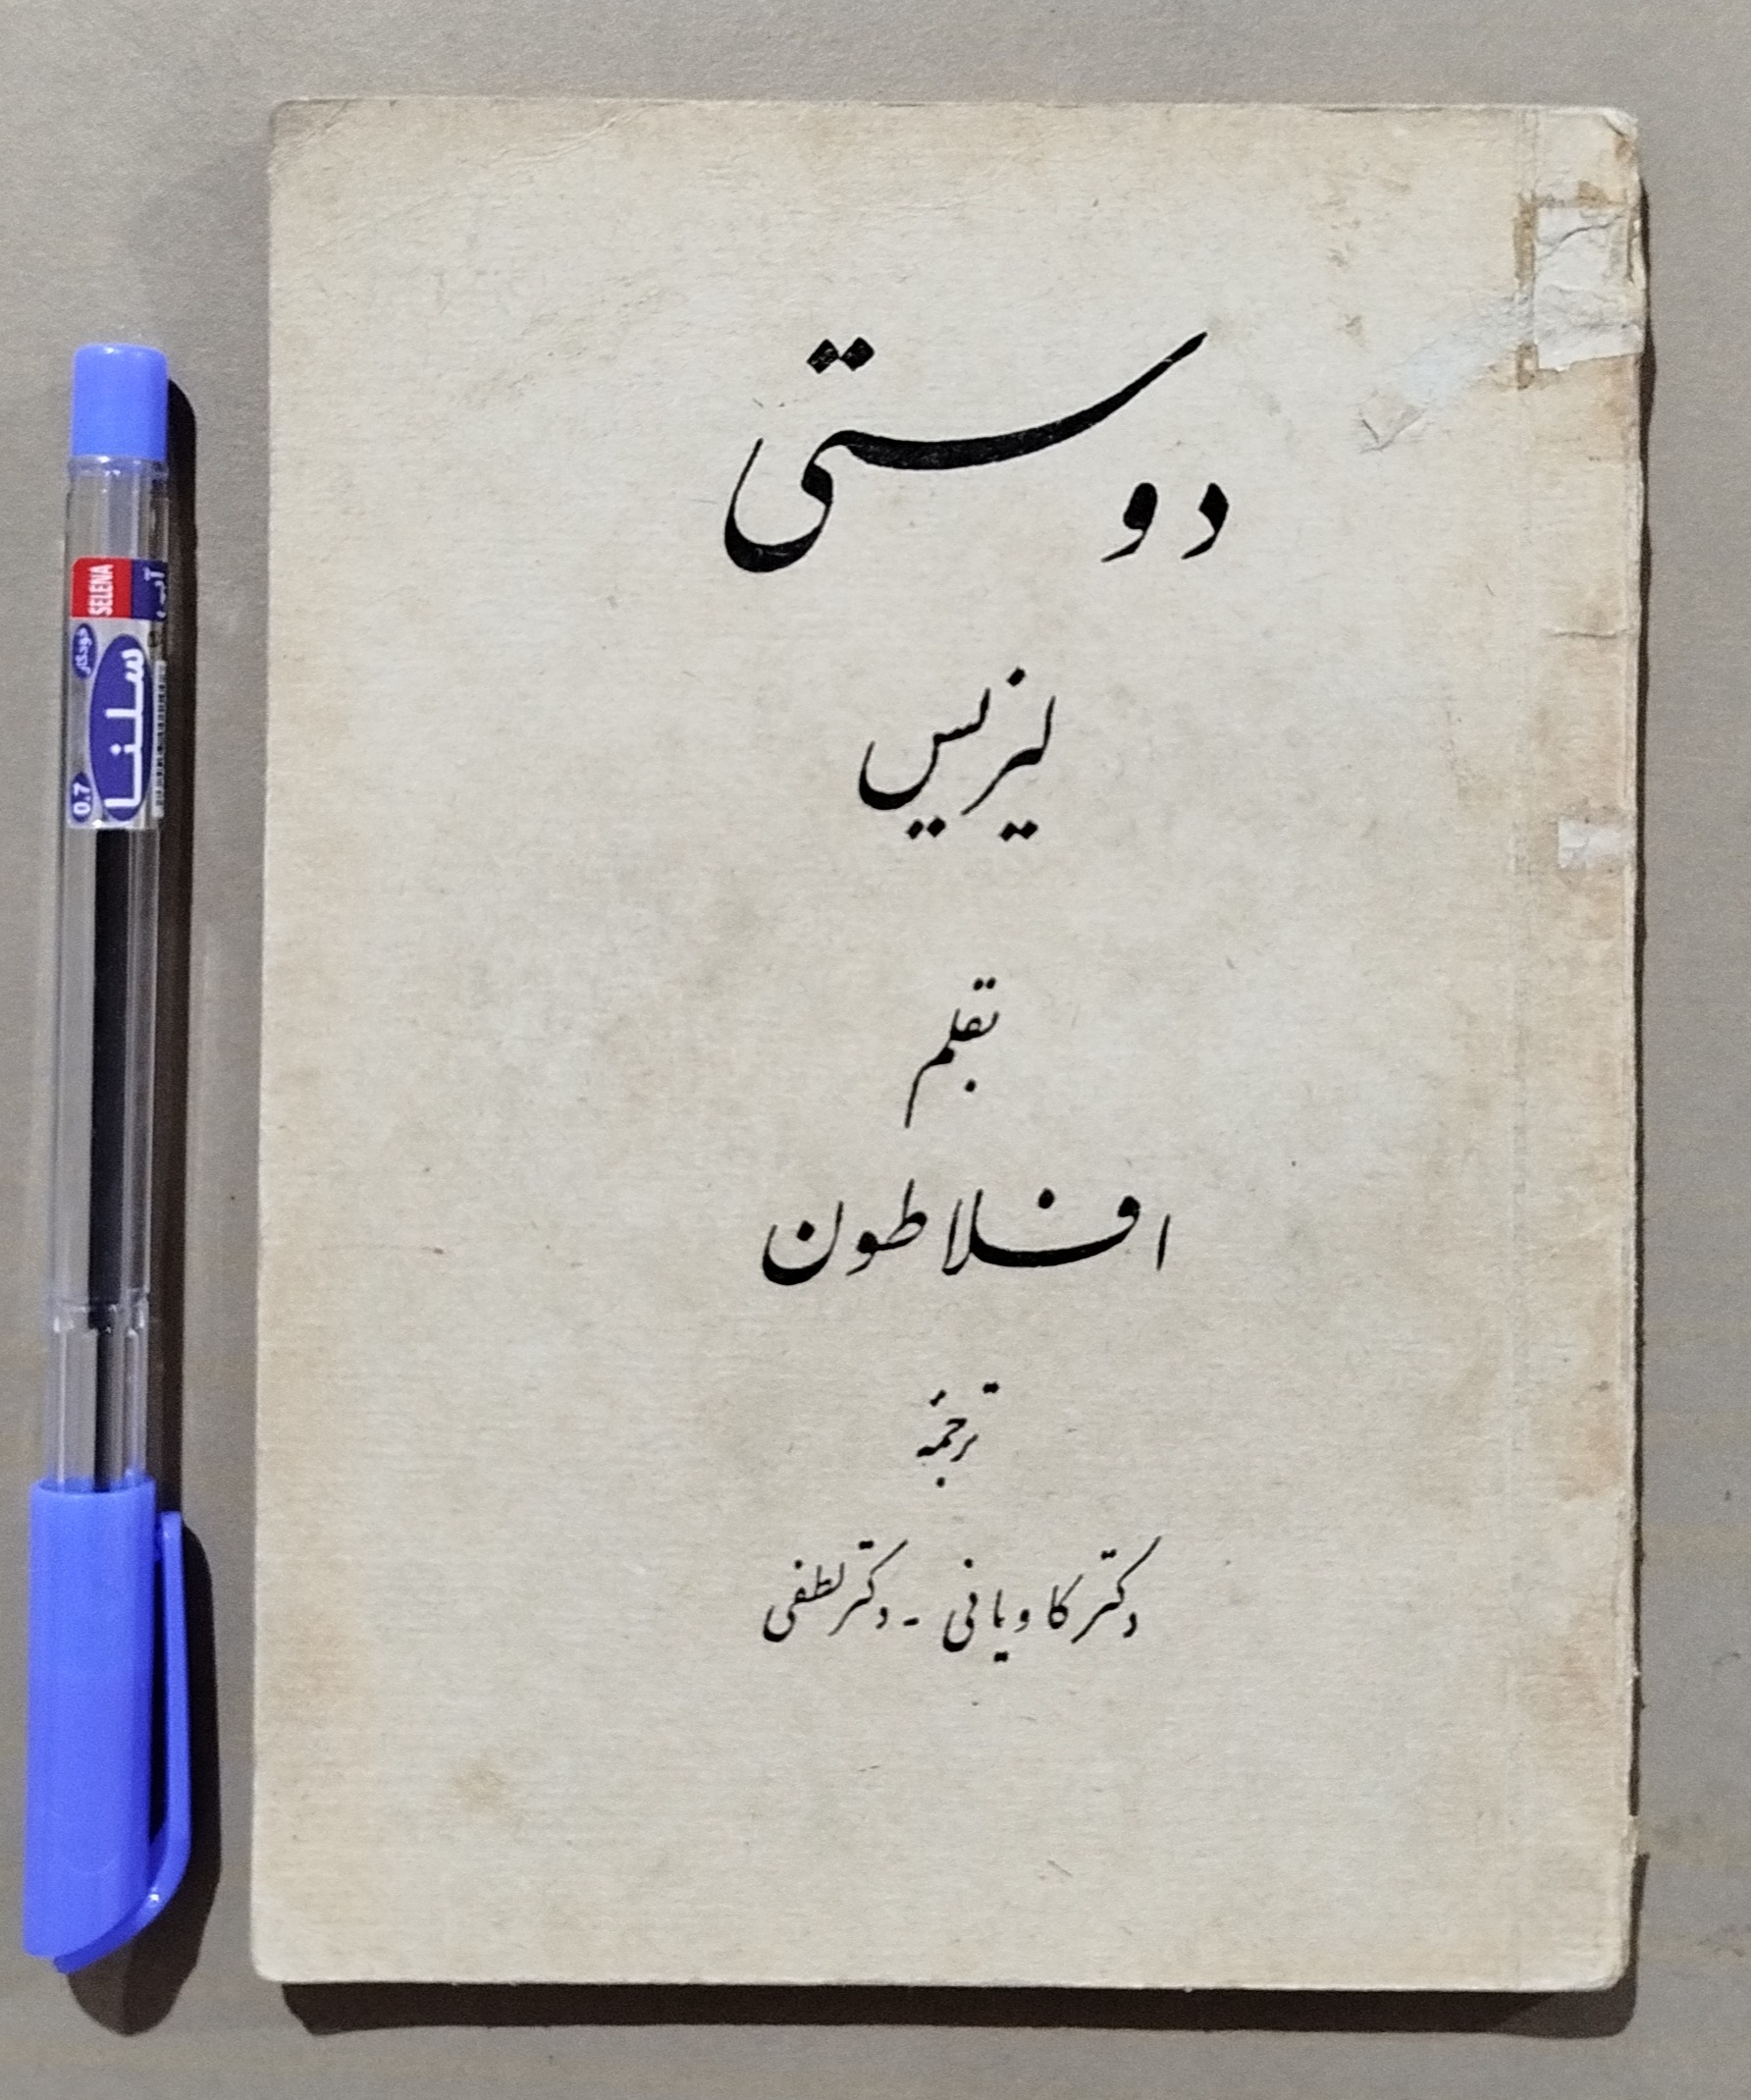 دوستی
لیزیس
بقلم
افلاطون
ترجمهٔ
دکتر کاویانی - دکتر لطفی
SELENA
آبی
خودکار
سلنا
0.7